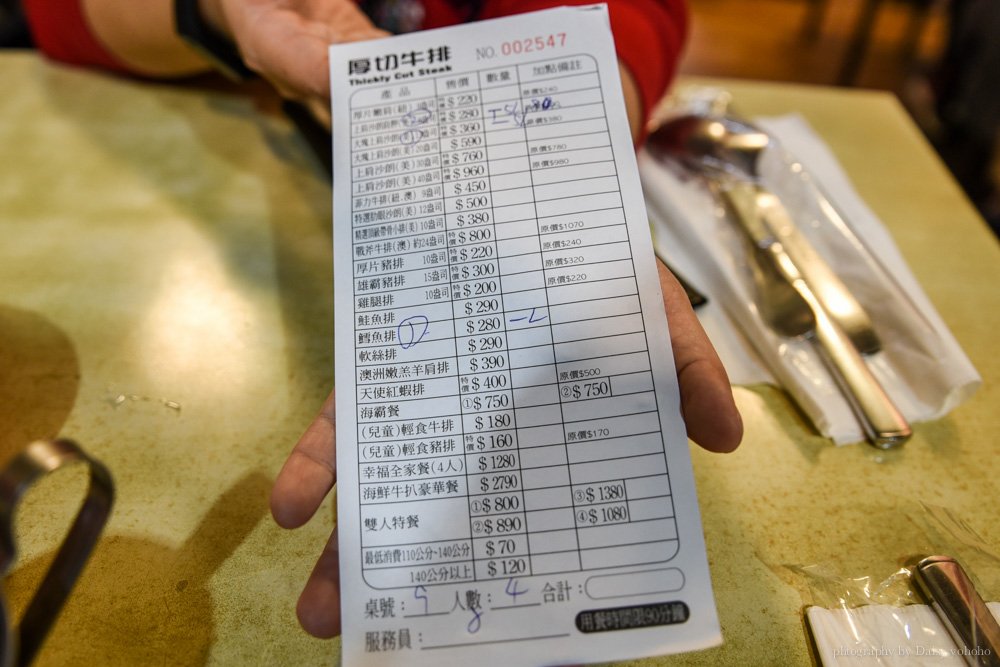 厚切牛排 NO. 002547
Thickly Cut Steak
產品 售價 數量 加點備註
厚片嫩肩(紐) 特價 $220 原價$240
$280
$360 原價$380
大塊上肩沙朗(美)20盎司 $590
上肩沙朗(美)30盎司 特價 $760 原價$780
上肩沙朗(美)40盎司 特價 $960 原價$980
菲力牛排(紐.澳) 9盎司 $450
特選肋眼沙朗(美)12盎司 $500
精選頂級帶骨小排(美)10盎司 $380
戰斧牛排(澳)約24盎司 特價 $800 原價$1070
厚片豬排 10盎司 特價 $220 原價$240
雄霸豬排 15盎司 特價 $300 原價$320
雞腿排 10盎司 特價 $200 原價$220
鮭魚排 $290
鱈魚排 ① $280
軟絲排 $290
澳洲嫩羔羊肩排 $390
天使紅蝦排 特價 $400 原價$500
海霸餐 ①$750 ②$750
(兒童)輕食牛排 $180
(兒童)輕食豬排 特價 $160 原價$170
幸福全家餐(4人) $1280
海鮮牛扒豪華餐 $2790
雙人特餐 ①$800 ③$1380
②$890 ④$1080
最低消費110公分~140公分 $70
140公分以上 $120
桌號: 9 人數: 4 合計:
服務員: 用餐時間限90分鐘
photography by Daisy yohoho